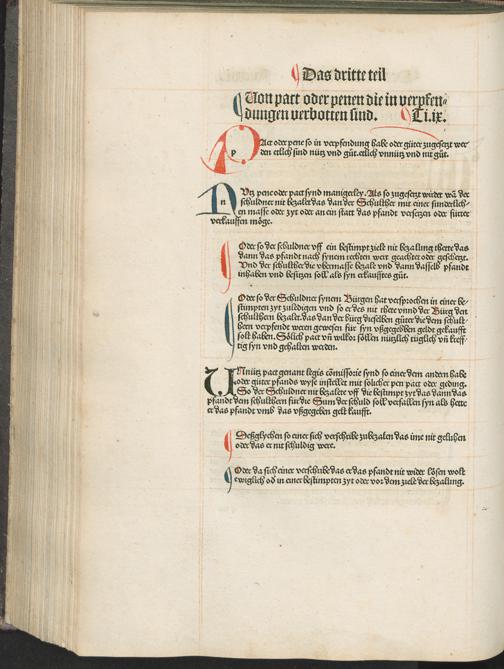 Das dritte teil
Von pact oder penen die in verpfen-
dungen verbotten sind. Ti.ix.
PAct oder pene so in verpfendung habe oder güter zugesetzt wer
den etlich sind nütz vnd gůt. etlich vnnütz vnd nit gůt.
NVtz pene oder pact synd manigerley. Als so zugesetzt würder wā der
schuldner nit bezalet das dan der Schulther mit einer sunderlich-
en masse oder zyt oder an ein statt das pfandt versetzen oder fürter
verkauffen möge.
Oder so der schuldner vff ein bestimpt ziele nit bezalung thette das
dann das pfandt nach synem rechten wert geachtet oder geschetzt.
Vnd der schulther die vbermasse bezalt vnd dann dasselb pfandt
inhaben vnd besitzen soll als syn erkaufftes gůt.
Oder so der Schuldner synem Bürgen hat versprochen in einer be-
stimpten zyt zu ledigen vnd so er des nit thete vnnd der Bürg den
schulthern bezalt. das dan der bürg dieselben güter die dem schult-
hern verpfendt weren gewesen für syn vßgegeben geldt gekaufft
solt haben. Sölich pact vñ wilkor söllen nützlich tüglich vñ kreff-
tig syn vnd gehalten werden.
VNnütz pact genant legis cōmissorie synd so einer dem andern habe
oder güter pfands wyse instellet mit solicher pen pact oder geding.
So der Schuldner nit bezalete vff die bestimpt zyt das dann das
pfandt dem schulthern für die Sum der schuld soll verfallen syn als hette
er das pfandt vmb das vßgegeben gelt kaufft.
Deßglychen so einer sich verschribe zubezalen das ime nit gelihen
oder das er nit schuldig were.
Oder da sich einer verschribe das er das pfandt nit wider lösen wolt
ewiglich oď in einer bestimpten zyt oder vor dem ziele der bezalung.